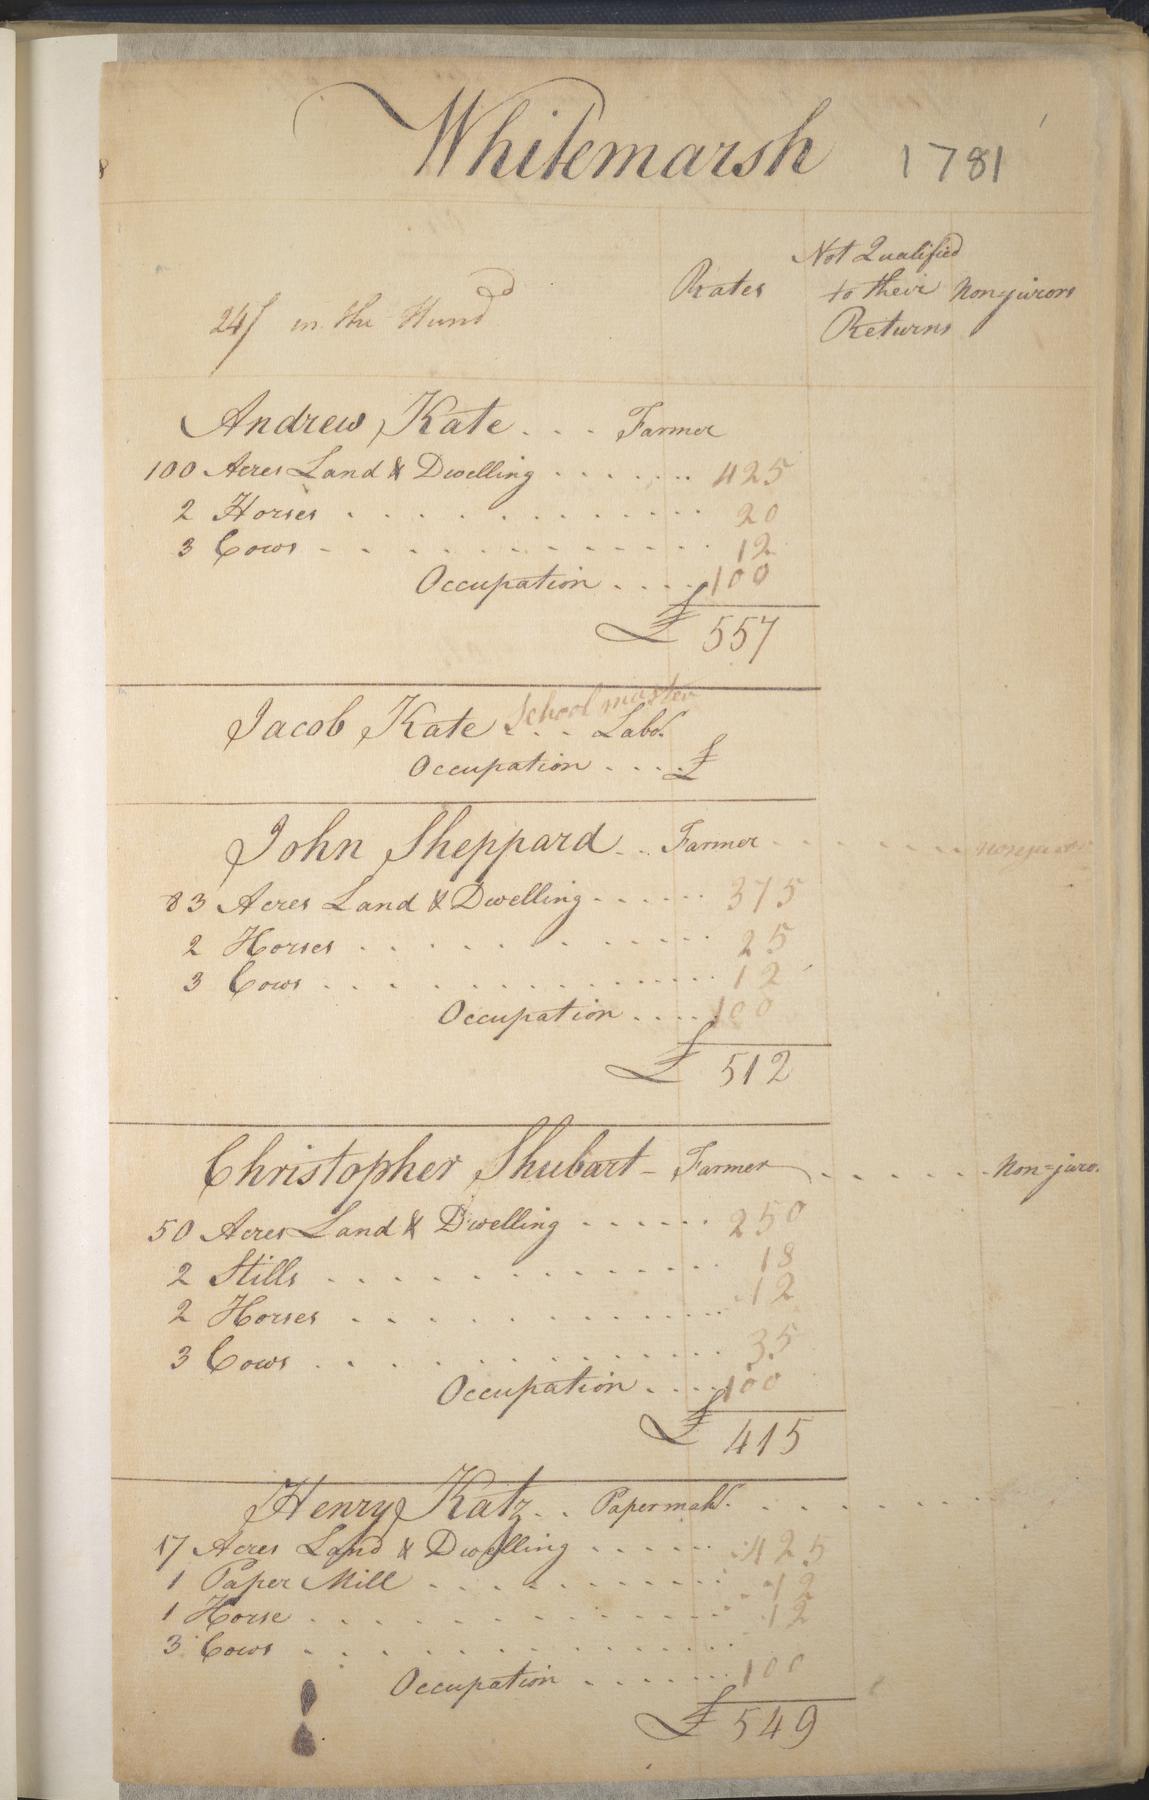 Whitemarsh 1781
Not Qualified
Rates to their Non=jurors
Returns
24/ in the Hund
Andrew Kate . . . Farmer
100 Acres Land & Dwelling . . . . . . . 425
2 Horses . . . . . . . . . . . . . 20
3 Cows . . . . . . . . . . . . . 12
Occupation . . . . 100
£ 557
School master
Jacob Kate . . . Labr.
Occupation . . . . £
John Sheppard . . . Farmer . . . . . . . nonjuror
83 Acres Land & Dwelling . . . . . . 375
2 Horses . . . . . . . . . . . . 25
3 Cows . . . . . . . . . . . . . 12
Occupation . . . . 100
£ 512
Christopher Shubart – Farmer . . . . . . Non=juro.
50 Acres Land & Dwelling . . . . . . 250
2 Stills . . . . . . . . . . . . . 18
2 Horses . . . . . . . . . . . . 12
3 Cows . . . . . . . . . . . . . 35
Occupation . . . . 100
£ 415
Henry Katz . . Papermakr. . . . . . . .
17 Acres Land & Dwelling . . . . . . 425
1 Paper Mill . . . . . . . . . . 12
1 Horse . . . . . . . . . . . . . 12
3 Cows . . . . . . . . . . . . .
Occupation . . . . . . . 100
£ 549